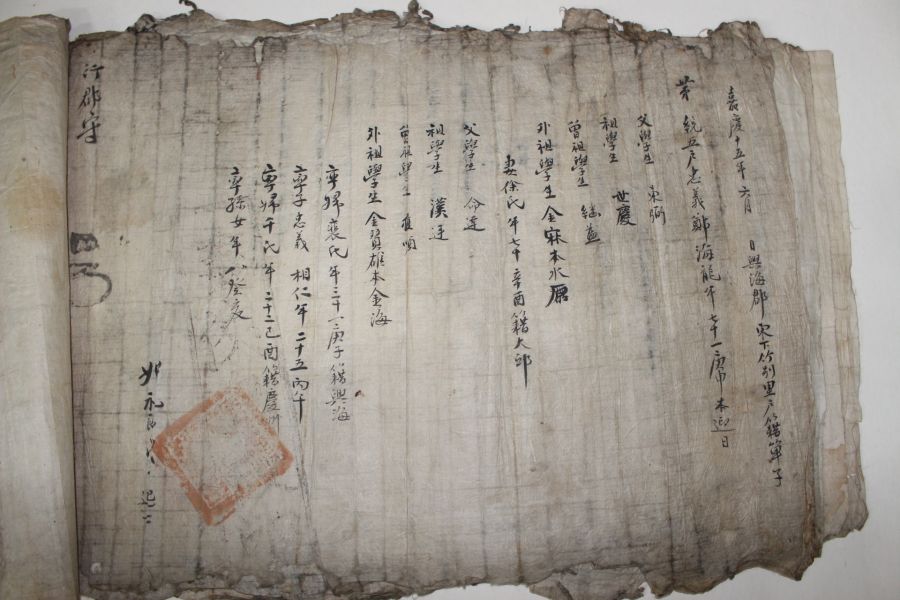 嘉慶十五年六月 日興海郡 東下竹別里戶籍單子
第 統五戶忠義鄭海龍年七十一庚申本迎日
父學生 東弼
祖學生 世慶
曾祖學生 継
外祖學生金 本水原
妻徐氏年七十辛酉籍大邱
父學生 命逹
祖學生 漢
曾祖學生
外祖學生金贊雄本金海
率婦裵氏年三十一庚子籍興海
率子忠義 相仁年二十五丙午
率婦千氏年二十二己酉籍慶州
率孫女年八癸亥
行郡守